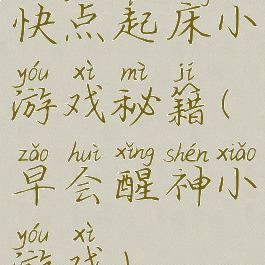 快点起床小
yóu xì mì jí
游戏秘籍(
zǎo huì xǐng shén xiǎo
早会醒神小
yóu xì
游戏)